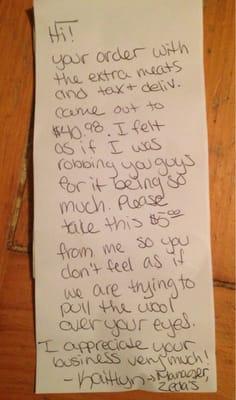 Hi!
your order with
the extra meats
and tax + deliv.
came out to
$40.98. I felt
as if I was
robbing you guys
for it being so
much. Please
take this $5.00
from me so you
don't feel as if
we are trying to
pull the wool
over your eyes.
I appreciate your
business very much!
- Kaitlyn → Manager,
Zeda's